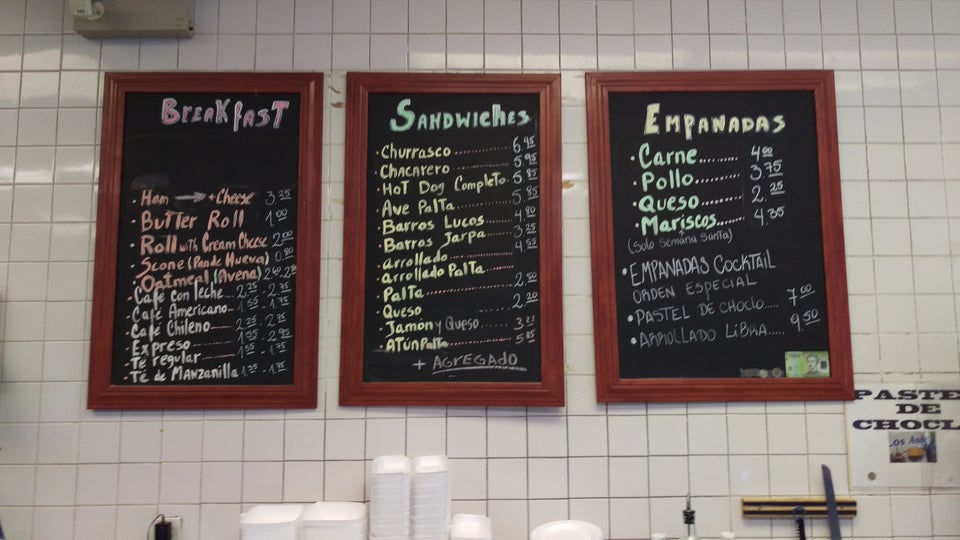 BreakfasT
Ham → + Cheese 3.25
Butter Roll 1.00
Roll with Cream Cheese 2.00
Scone (Pan de Hueva) 0.80
Oatmeal (Avena)
Café con leche
Café Americano
Café Chileno
Expreso
Té regular
Té de Manzanilla
Sandwiches
Churrasco 6.95
Chacarero 5.95
Hot Dog Completo 5.85
Ave Palta 5.85
Barros Lucos 4.80
Barros Jarpa 3.25
arrollado 4.55
arrollado Palta
Palta 2.50
Queso 2.20
Jamon y Queso
ATÚN Palta 5.85
+ AGREGADO
Empanadas
Carne 4.00
Pollo 3.75
Queso 2.25
Mariscos 4.35
(Solo Semana Santa)
EMPANADAS COCKTAIL
ORDEN ESPECIAL
PASTEL DE CHOCLO 7.00
ARROLLADO LIBRA 9.50
PASTE
DE
CHOCL
Los Andes